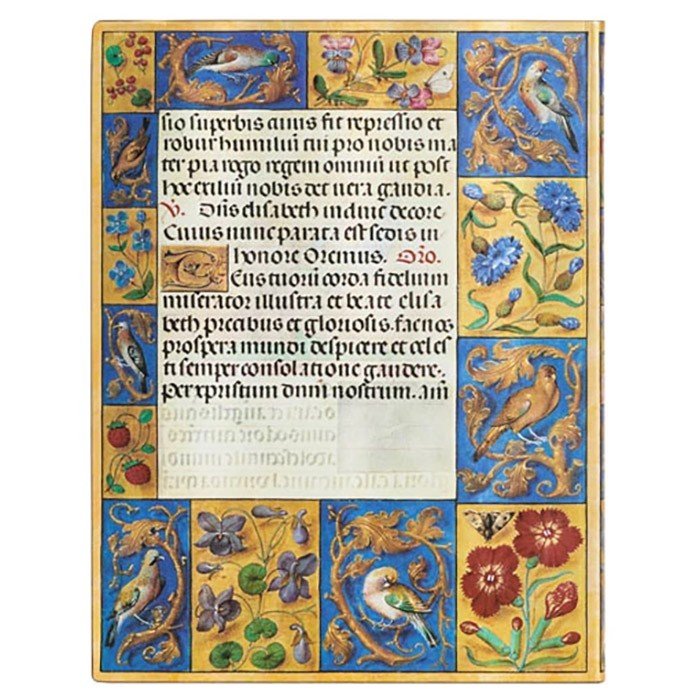 sio superbis cuius fit repressio et
robur humiliū tui pro nobis ma
ter pia rogo regem omniū ut post
hoc exiliū nobis det uera gaudia.
V. Dn̄s elisabeth induit decore
Cuius nunc parata est sedis in
honore Oremus. Or̄o.
Eus tuorū corda fidelium
miserator illustra et beate elisa
beth precibus et gloriosis. fac nos
prospera mundi despicere et celes
ti semper consolatione gaudere.
Per xp̄istum dn̄m nostrum. am̄